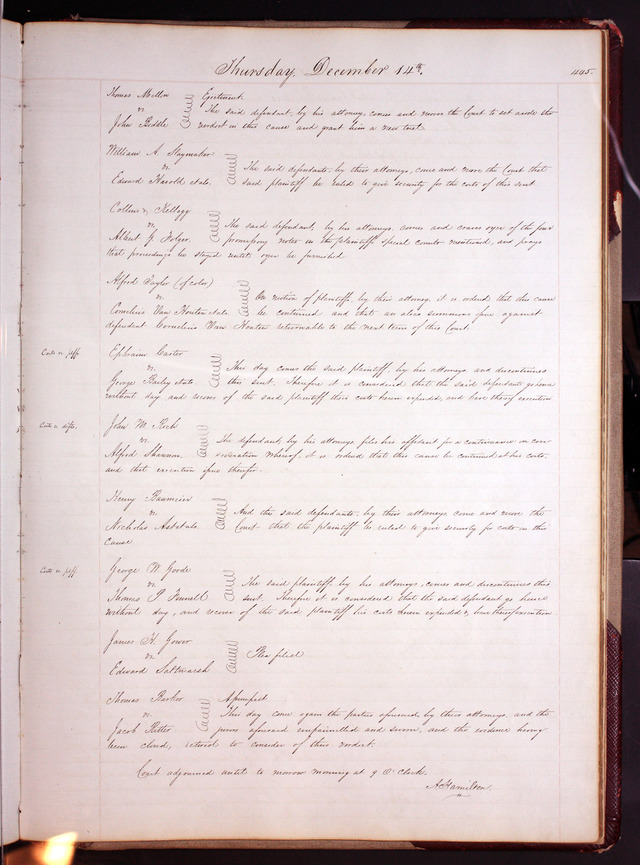 Thursday December 14th. 495.
Thomas Mellon Ejectment
vs The said defendant, by his attorney, comes and moves the Court to set aside the
John Biddle verdict in this cause and grant him a new trial
William A. Slaymaker
vs. The said defendants, by their attorneys, come and move the Court that
Edward Harold et als. said plaintiff be ruled to give security for the costs of this suit
Collins & Kellogg
vs. The said defendant, by his attorneys, comes and craves oyer of the four
Albert G. Folger promissory notes in the plaintiffs special counts mentioned, and prays
that proceedings be stayed until oyer be furnished
Alfred Taylor (of color)
vs. On motion of plaintiff, by their attorney, it is ordered that this cause
Cornelius Van Houten et als be continued and that an alias summons issue against
defendant Cornelius Van Houten returnable to the next term of this Court.
Costs vs. plff. Ephraim Carter
vs. This day comes the said plaintiff, by his attorneys and discontinues
George Bailey et als this suit. Therefore it is considered that the said defendants go hence
without day and recover of the said plaintiff their costs herein expended, and have thereof execution
Costs vs. defts. John M. Rich
vs. The defendant, by his attorneys files his affidavit for a continuance in con-
Alfred Shannon sideration whereof, it is ordered that this cause be continued at his costs,
and that execution issue therefor.
Henry
vs. And the said defendants, by their attorneys come and move the
Nicholas et als Court that the plaintiff be ruled to give security for costs in this
Cause
Costs vs. plff. George W. Goode
vs The said plaintiff, by his attorneys, comes and discontinues this
Thomas P. suit. Therefore it is considered that the said defendant go hence
without day, and recover of the said plaintiff his costs herein expended & have thereof execution
James H. Gower
vs. Plea filed
Edward Saltmarsh
Thomas Barker Assumpsit
vs. This day come again the parties aforesaid by their attorneys, and the
Jacob Ritter jurors aforesaid empannelled and sworn, and the evidence having
been closed, retired to consider of their verdict.
Court adjourned until to morrow morning at 9 O'Clock.
A Hamilton